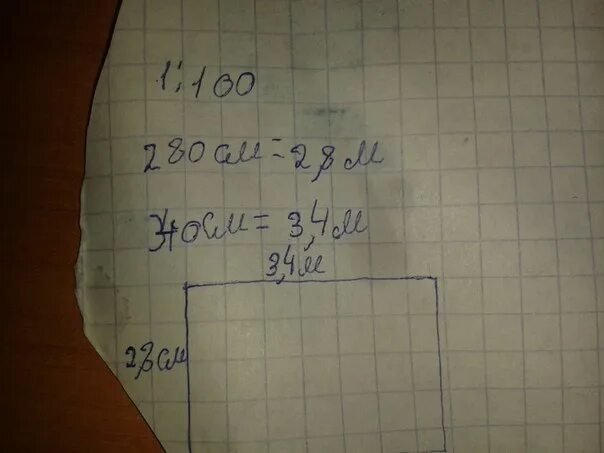 1:100
280 см = 2,8 м
340 см = 3,4 м
3,4 м
2,8 см